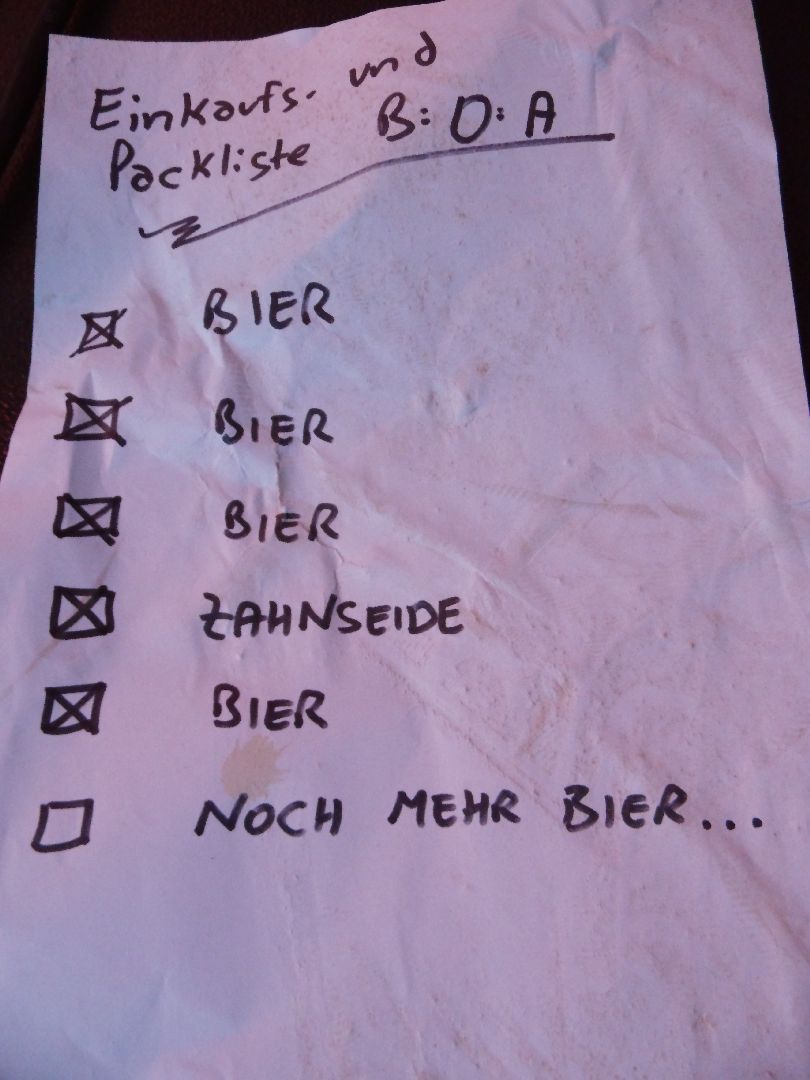 Einkaufs- und
Packliste B:O:A
BIER
BIER
BIER
ZAHNSEIDE
BIER
NOCH MEHR BIER...